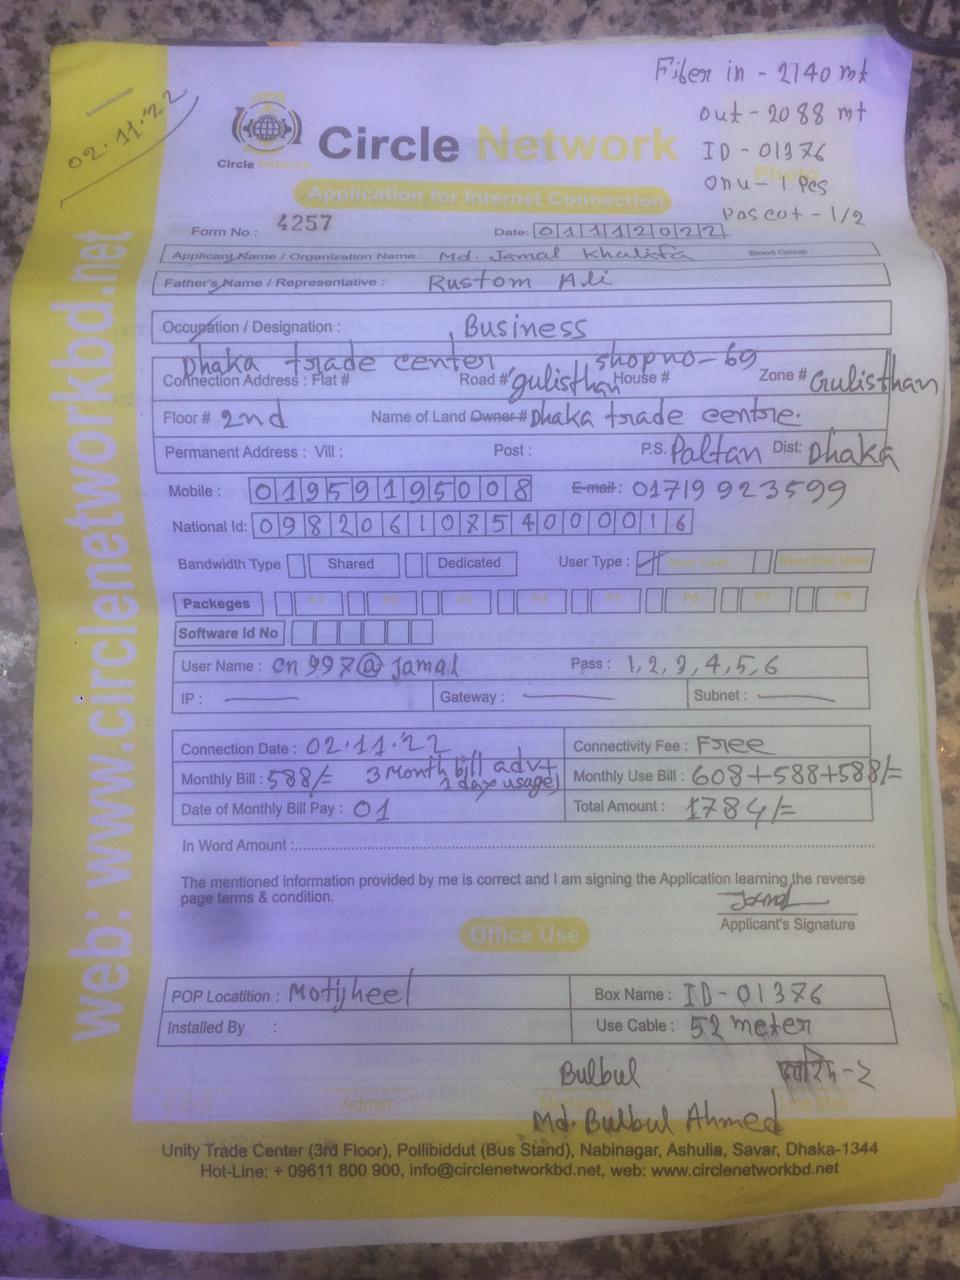 Fiber in - 2140 mt
out - 2088 mt
ID - 01376
onu - 1 Pcs
Pascot - 1/2
02.11.22
Circle Network
Circle Network
Photo
Application for Internet Connection
Form No : 4257 Date: 01112022
Applicant Name / Organization Name : Md. Jamal Khalifa Blood Group
Father's Name / Representative : Rustom Ali
Occupation / Designation : Business
Dhaka trade center shop no - 69
Connection Address : Flat # Road # gulisthan House # Zone # Gulisthan
Floor # 2nd Name of Land Owner # Dhaka trade centre.
Permanent Address : Vill : Post : P.S. Paltan Dist: Dhaka
Mobile : 01959195008 E-mail : 01719 923599
National Id: 09820610754000016
Bandwidth Type Shared Dedicated User Type : New User Reactive User
Packeges P1 P2 P3 P4 P5 P6 P7 P8
Software Id No
User Name : cn997@jamal Pass : 1,2,3,4,5,6
IP : Gateway : Subnet :
Connection Date : 02.11.22 Connectivity Fee : Free
Monthly Bill : 588/= 3 Month bill adv+ 1 day usage) Monthly Use Bill : 608+588+588/=
Date of Monthly Bill Pay : 01 Total Amount : 1784/=
In Word Amount :
The mentioned information provided by me is correct and I am signing the Application learning the reverse
page terms & condition.
Jamal
Applicant's Signature
Office Use
POP Locatition : Motijheel Box Name : ID-01376
Installed By : Use Cable : 52 meter
Bulbul
Admin Marketing Line Man
Md. Bulbul Ahmed
Unity Trade Center (3rd Floor), Pollibiddut (Bus Stand), Nabinagar, Ashulia, Savar, Dhaka-1344
Hot-Line: + 09611 800 900, info@circlenetworkbd.net, web: www.circlenetworkbd.net
web: www.circlenetworkbd.net